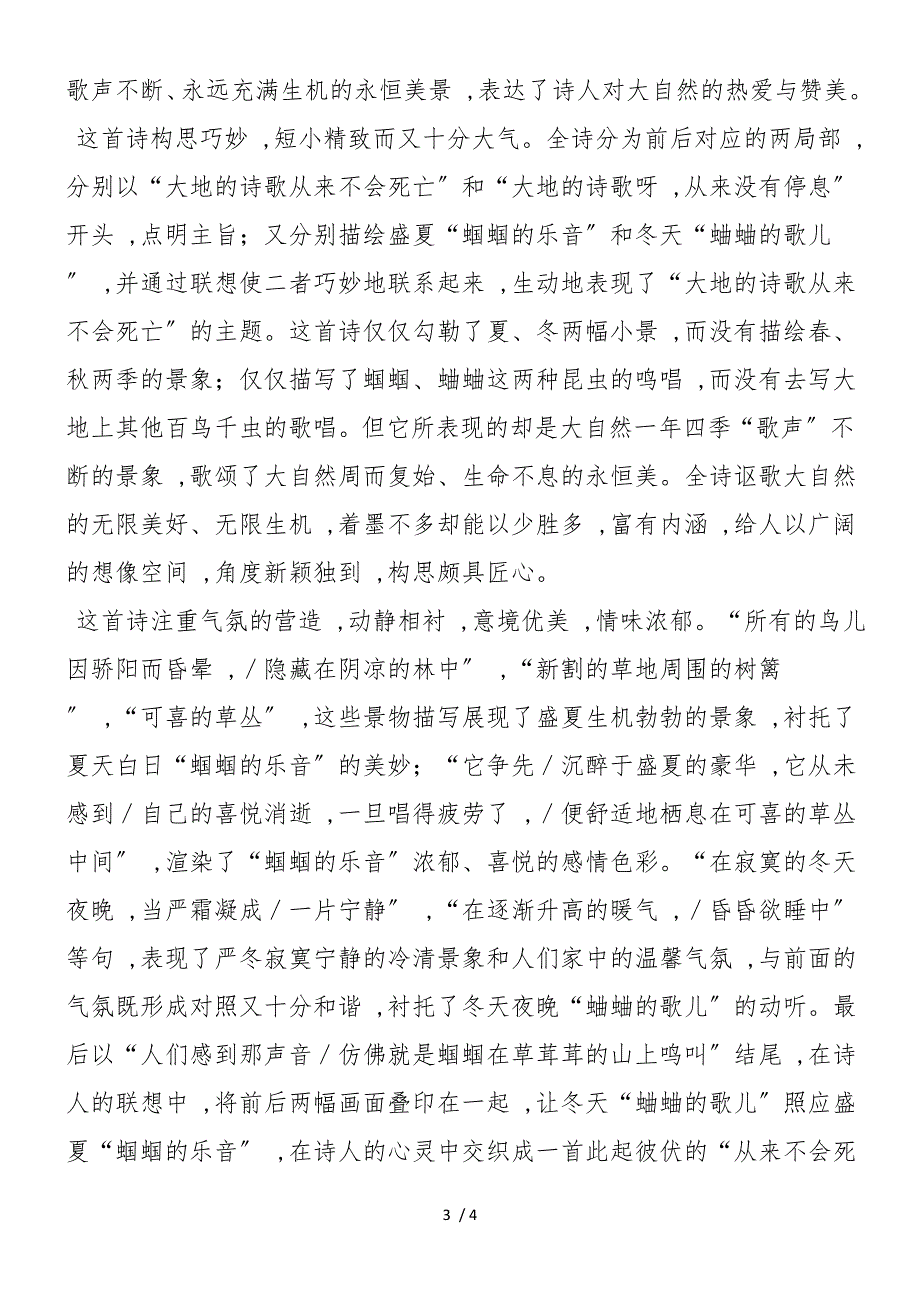 歌声不断、永远充满生机的永恒美景 ,表达了诗人对大自然的热爱与赞美。
这首诗构思巧妙 ,短小精致而又十分大气。全诗分为前后对应的两局部 ,
分别以“大地的诗歌从来不会死亡〞和“大地的诗歌呀 ,从来没有停息〞
开头 ,点明主旨；又分别描绘盛夏“蝈蝈的乐音〞和冬天“蛐蛐的歌儿
〞 ,并通过联想使二者巧妙地联系起来 ,生动地表现了“大地的诗歌从来
不会死亡〞的主题。这首诗仅仅勾勒了夏、冬两幅小景 ,而没有描绘春、
秋两季的景象；仅仅描写了蝈蝈、蛐蛐这两种昆虫的鸣唱 ,而没有去写大
地上其他百鸟千虫的歌唱。但它所表现的却是大自然一年四季“歌声〞不
断的景象 ,歌颂了大自然周而复始、生命不息的永恒美。全诗讴歌大自然
的无限美好、无限生机 ,着墨不多却能以少胜多 ,富有内涵 ,给人以广阔
的想像空间 ,角度新颖独到 ,构思颇具匠心。
这首诗注重气氛的营造 ,动静相衬 ,意境优美 ,情味浓郁。“所有的鸟儿
因骄阳而昏晕 ,／隐藏在阴凉的林中〞 ,“新割的草地周围的树篱
〞 ,“可喜的草丛〞 ,这些景物描写展现了盛夏生机勃勃的景象 ,衬托了
夏天白日“蝈蝈的乐音〞的美妙；“它争先／沉醉于盛夏的豪华 ,它从未
感到／自己的喜悦消逝 ,一旦唱得疲劳了 ,／便舒适地栖息在可喜的草丛
中间〞 ,渲染了“蝈蝈的乐音〞浓郁、喜悦的感情色彩。“在寂寞的冬天
夜晚 ,当严霜凝成／一片宁静〞 ,“在逐渐升高的暖气 ,／昏昏欲睡中〞
等句 ,表现了严冬寂寞宁静的冷清景象和人们家中的温馨气氛 ,与前面的
气氛既形成对照又十分和谐 ,衬托了冬天夜晚“蛐蛐的歌儿〞的动听。最
后以“人们感到那声音／仿佛就是蝈蝈在草茸茸的山上鸣叫〞结尾 ,在诗
人的联想中 ,将前后两幅画面叠印在一起 ,让冬天“蛐蛐的歌儿〞照应盛
夏“蝈蝈的乐音〞 ,在诗人的心灵中交织成一首此起彼伏的“从来不会死
3 / 4